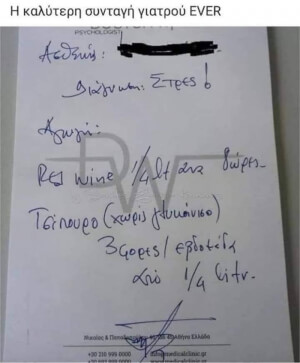 Η καλύτερη συνταγή γιατρού EVER
PSYCHOLOGIST
Ασθενής:
Διάγνωση: Στρες!
Αγωγή:
Red wine 1/4 lt ανα 8ώρες.
Τσίπουρο (χωρίς γλυκάνισο)
3 φορές / εβδομάδα
από 1/4 litr.
Ελλάδα